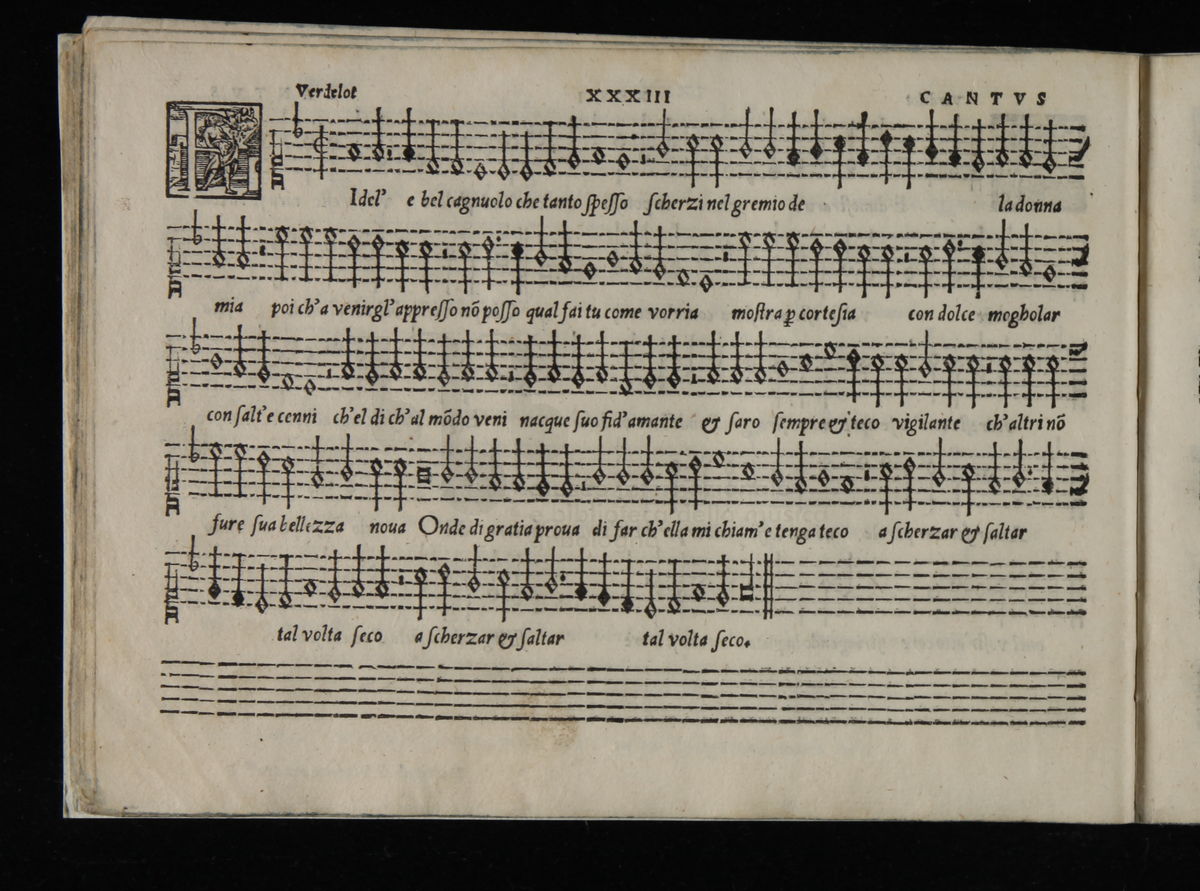 Verdelot XXXIII CANTVS
FIdel' e bel cagnuolo che tanto ſpeſſo ſcherzi nel gremio de la donna
mia poi ch'a venirgl'appreſſo nõ poſſo qual fai tu come vorria moſtra ꝑ corteſia con dolce mogholar
con ſalt'e cenni ch'el di ch'al mõdo veni nacque ſuo fid'amante & ſaro ſempre & teco vigilante ch'altri nõ
fure ſua bellezza noua Onde di gratia proua di far ch'ella mi chiam'e tenga teco a ſcherzar & ſaltar
tal volta ſeco a ſcherzar & ſaltar tal volta ſeco.